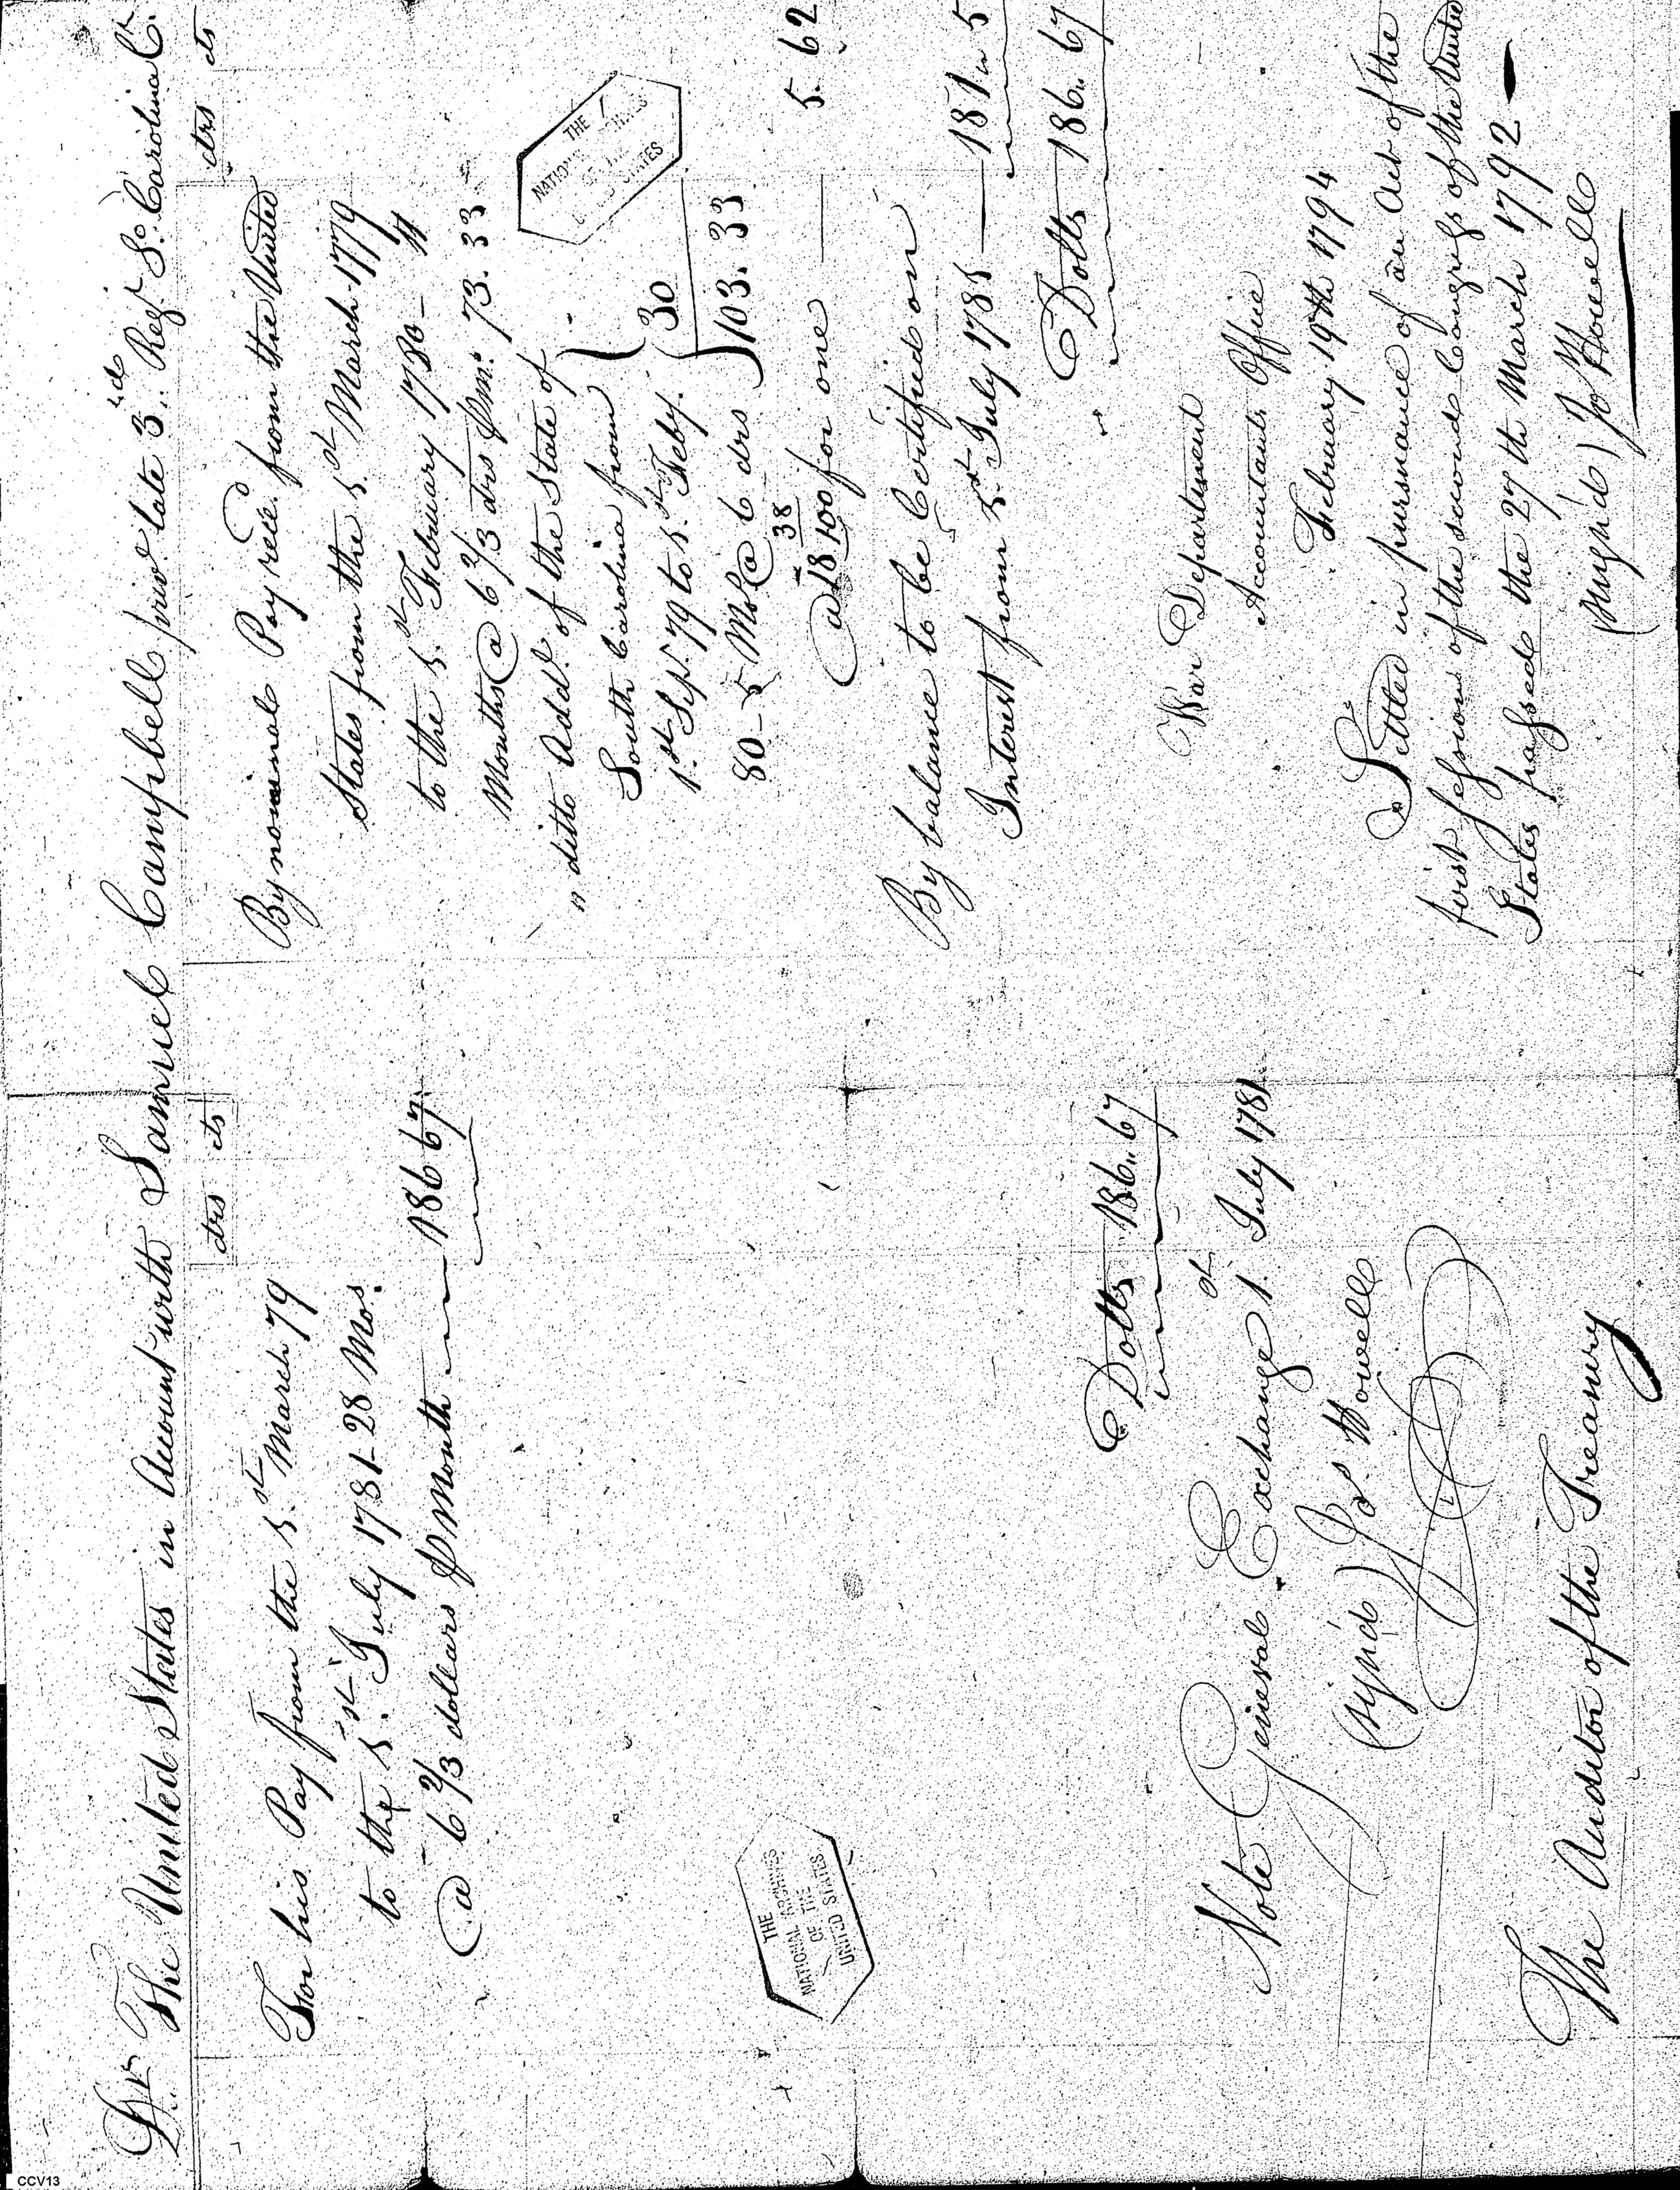 Dr. The United States in Account with Samuel Campbell priv.t late 3.rd Reg.t S.o Carolina Cr.
drs cts
For his Pay from the 1.st March 79
to the 1.st July 1781 28 Mos.
@ 6 2/3 dollars ⅌ Month 186 67
Dolls 186.. 67
Note General Exchange 1.st July 1781
(sign'd) Jos. Howell
The Auditor of the Treasury
drs cts
By nominal Pay rec.d from the United
States from the 1.st March 1779
to the 1.st February 1780 - 11
Months @ 6 2/3 drs ⅌ m. 73. 33
" ditto Add.l of the State of
South Carolina from
1.st Sep.t 79 to 1.st Feby. 30
80 - 5 Ms @ 6 drs 103. 33
@ 18 38/100 for one 5. 62
By balance to be Certified on
Interest from 1.st July 1781 181 " 5
Dolls 186.. 67
War Department
Accountants Office
February 19th 1794
Settled in pursuance of an Act of the
first session of the second Congress of the United
States passed the 27th March 1792
(sign'd) Jos Howell
THE NATIONAL ARCHIVES OF THE UNITED STATES
THE
NATIONAL ARCHIVES
OF THE
UNITED STATES
CCV13